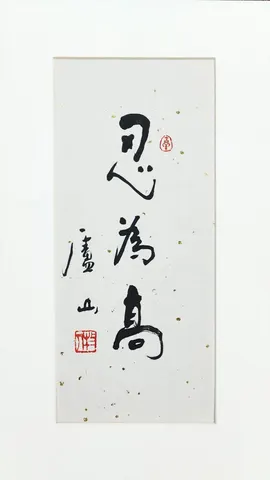 忍為高
盧山